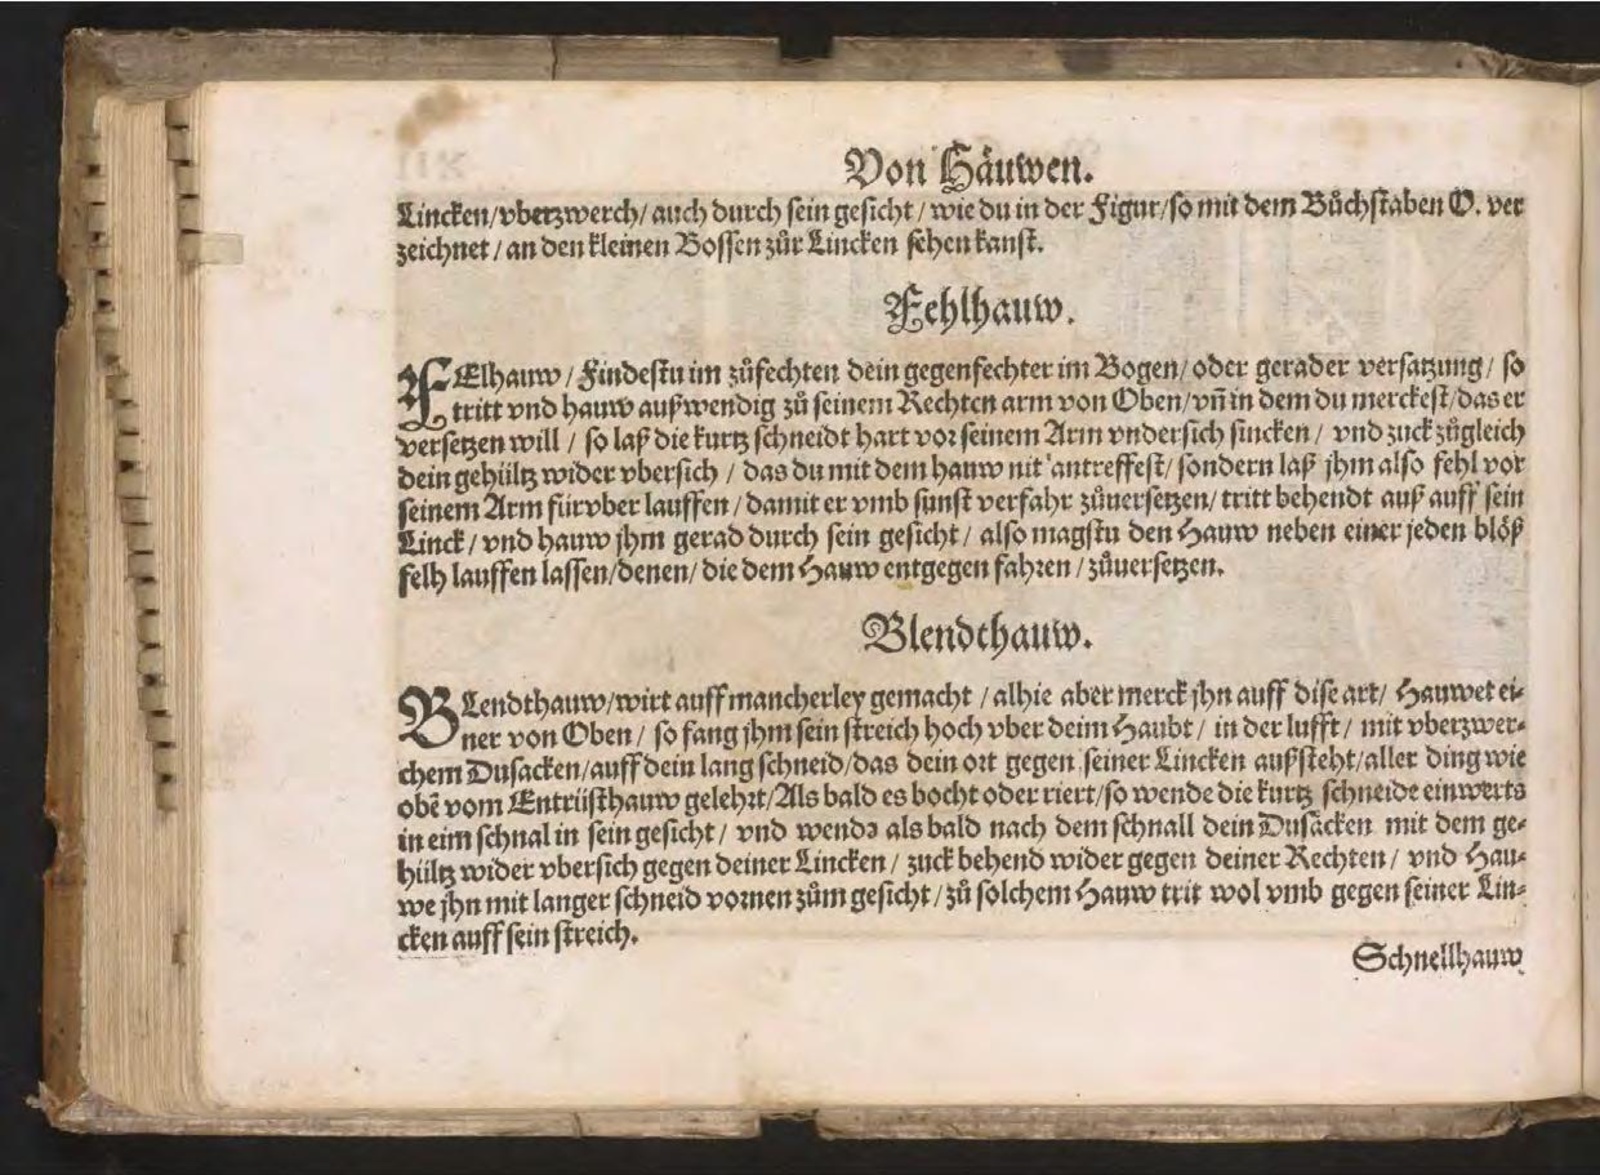 Von Häuwen.
Lincken/vberzwerch/ auch durch sein gesicht/ wie du in der Figur/so mit dem Bůchstaben O. ver
zeichnet/ an den kleinen Bossen zůr Lincken sehen kanst.
Fehlhauw.
FElhauw/ Findestu im zůfechten dein gegenfechter im Bogen/ oder gerader versatzung/ so
tritt vnd hauw außwendig zů seinem Rechten arm von Oben/vñ in dem du merckest/das er
versetzen will/ so laß die kurtz schneidt hart vor seinem Arm vndersich sincken/ vnd zuck zůgleich
dein gehültz wider vbersich/ das du mit dem hauw nit antreffest/ sondern laß jhm also fehl vor
seinem Arm fürvber lauffen/ damit er vmb sunst verfahr zůuersetzen/ tritt behendt auß auff sein
Linck/ vnd hauw jhm gerad durch sein gesicht/ also magstu den Hauw neben einer jeden blöß
felh lauffen lassen/denen/ die dem Hauw entgegen fahren/ zůuersetzen.
Blendthauw.
BLendthauw/wirt auff mancherley gemacht/ alhie aber merck jhn auff dise art/ Hauwet ei-
ner von Oben/ so fang jhm sein streich hoch vber deim Haubt/ in der lufft/ mit vberzwer-
chem Dusacken/auff dein lang schneid/das dein ort gegen seiner Lincken außsteht/aller ding wie
obē vom Entrüsthauw gelehrt/Als bald es bocht oder riert/so wende die kurtz schneide einwerts
in eim schnal in sein gesicht/ vnd wende als bald nach dem schnall dein Dusacken mit dem ge-
hültz wider vbersich gegen deiner Lincken/ zuck behend wider gegen deiner Rechten/ vnd Hau-
we jhn mit langer schneid vornen zům gesicht/ zů solchem Hauw trit wol vmb gegen seiner Lin-
cken auff sein streich.
Schnellhauw